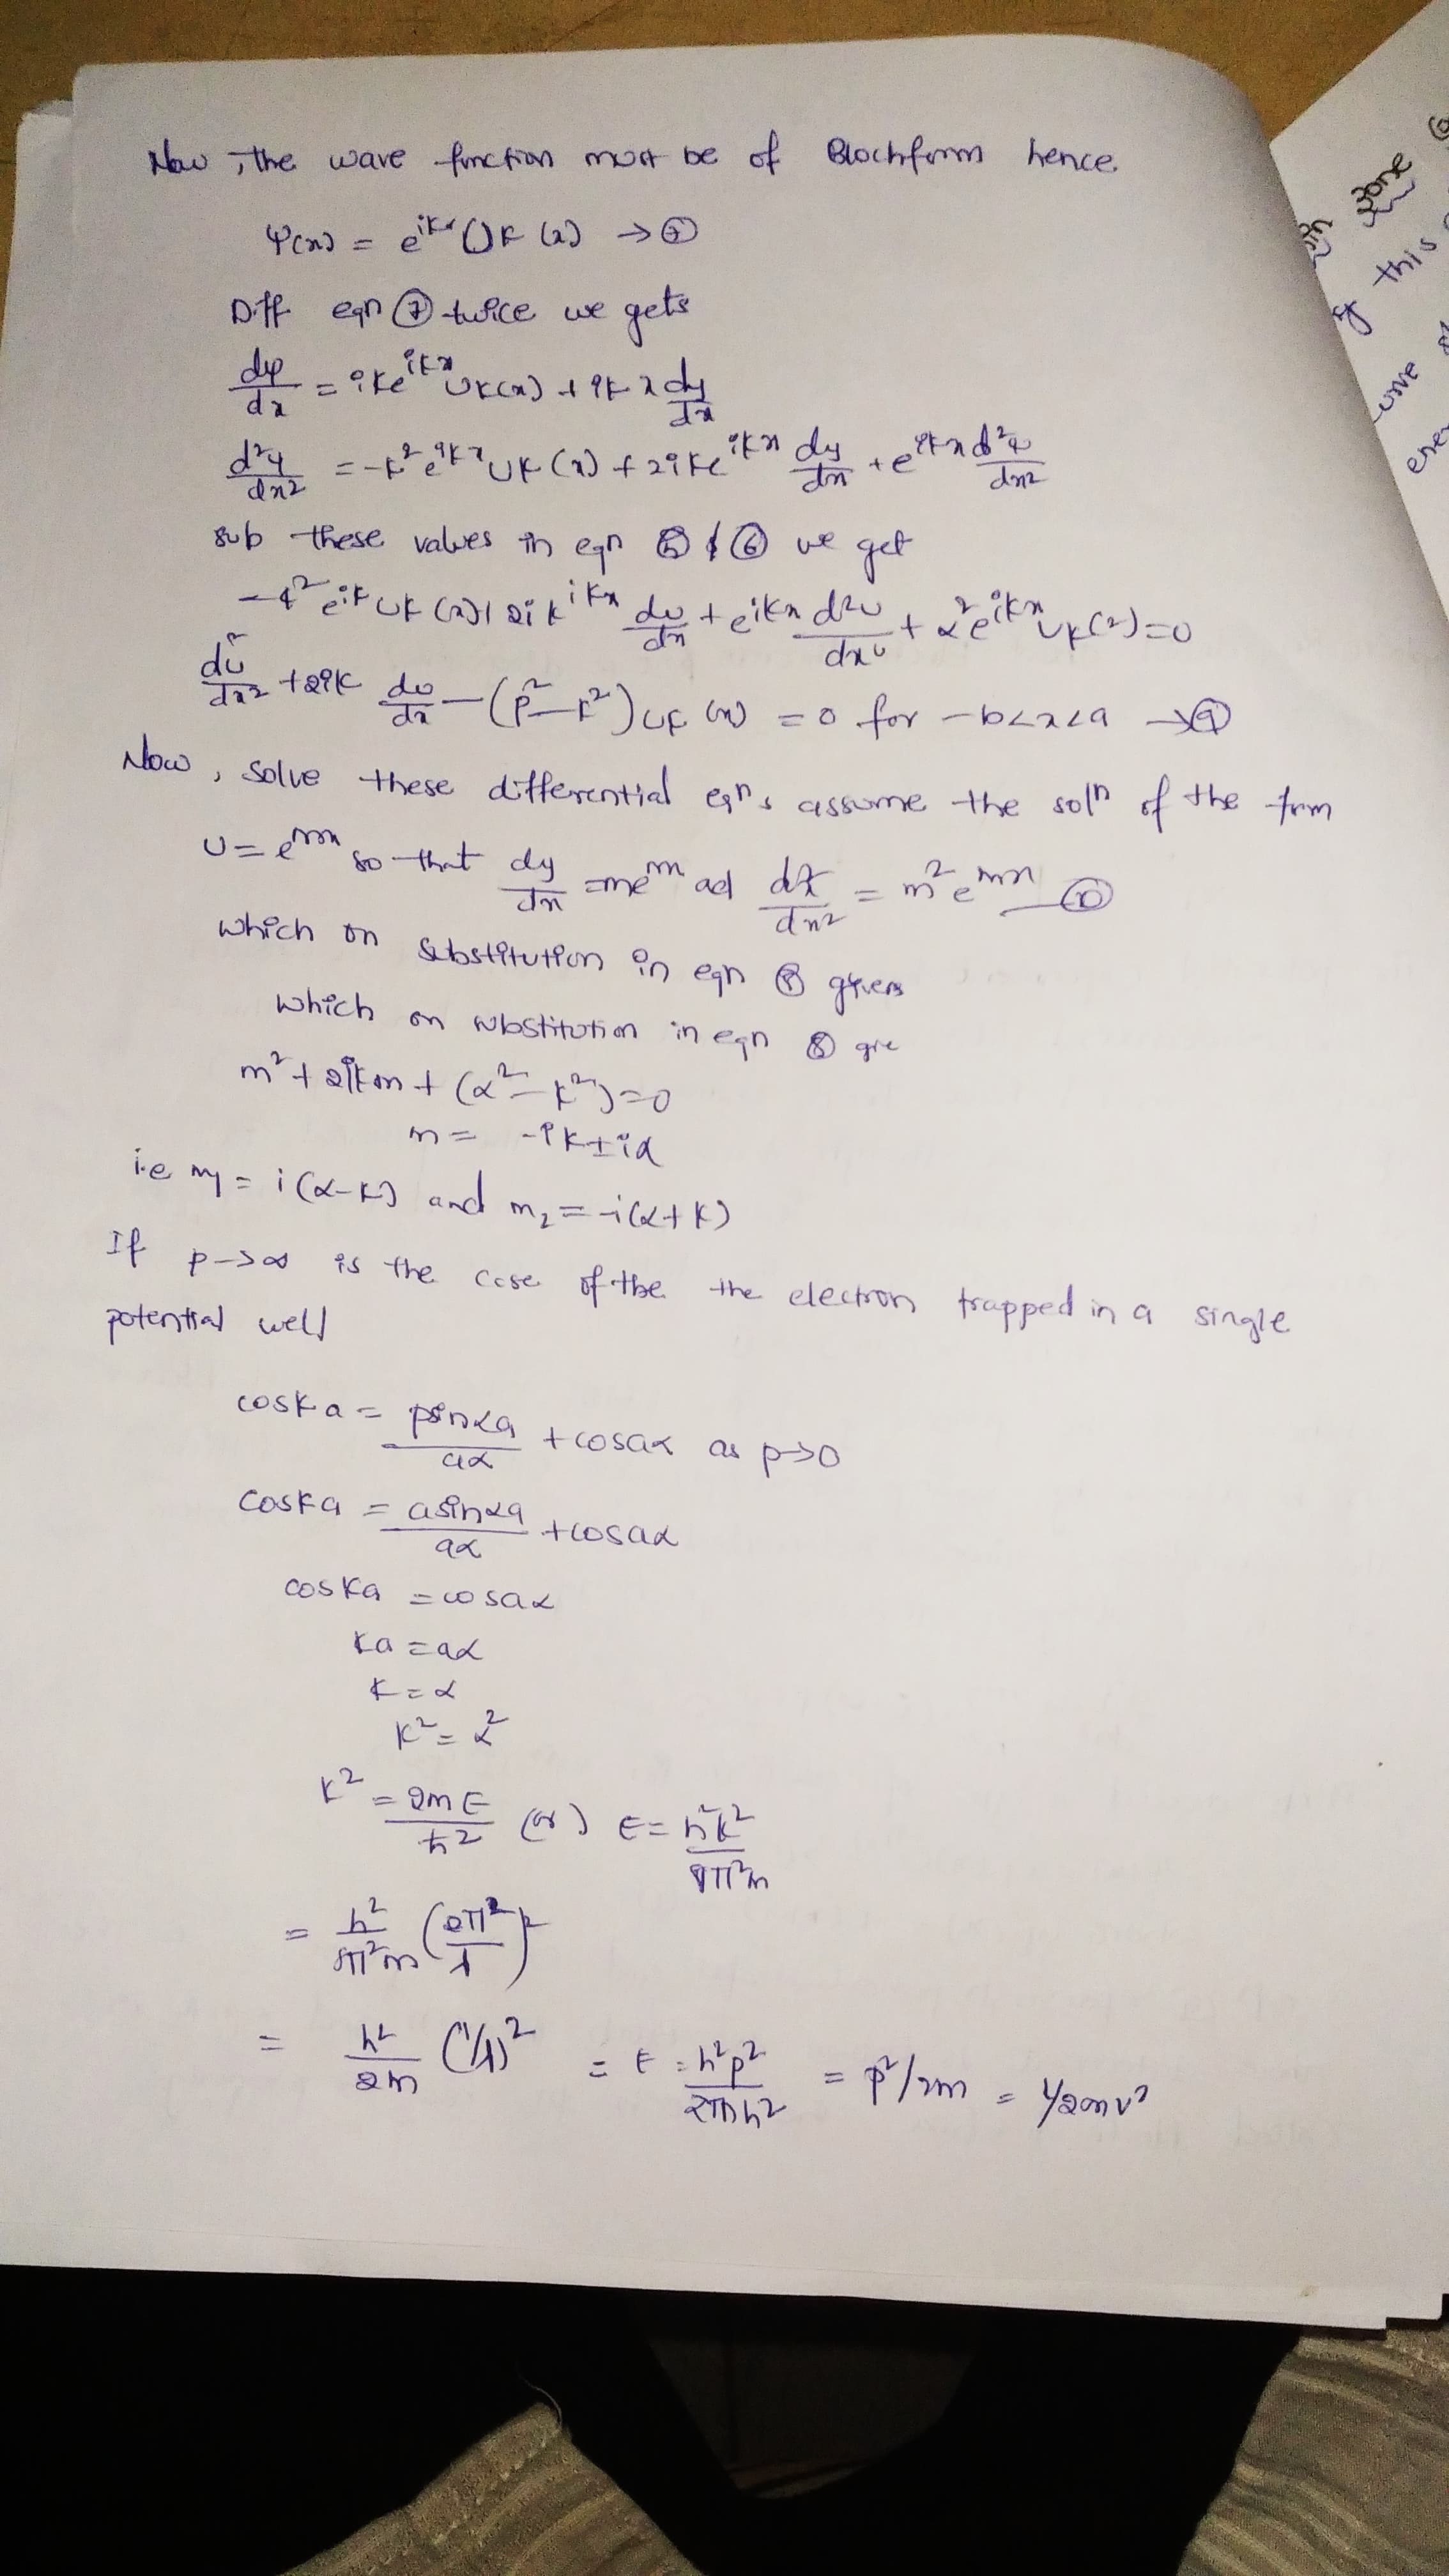 Now, the wave function must be of Blochform hence
ψ(x) = e^{ikx} Uk(x) → ⑦
Diff eqn ⑦ twice we gets
dψ/dx = ike^{ikx} Uk(x) + ik x dy/dx
d²y/dx² = -k² e^{ikx} Uk(x) + 2ike^{ikx} dy/dx + e^{ikx} d²u/dx²
sub these values in eqn ⑤ & ⑥ we get
-k² e^{ik} Uk(x) + 2ik^{ikx} du/dx + e^{ikx} d²u/dx² + α² e^{ikx} Uk(x) = 0
d²u/dx² + 2ik du/dx - (β² - k²) Uk(x) = 0 for -b<x<a → ⑨
Now, solve these differential eqns assume the solⁿ of the form
U = e^{mx} so that dy/dx = me^{mx} ad d²/dx² = m² e^{mx} — ⑩
which on substitution in eqn ⑧ gives
which on substitution in eqn ⑧ give
m² + 2ikm + (α² - k²) = 0
m = -ik ± iα
i.e m₁ = i(α-k) and m₂ = -i(α+k)
If p→∞ is the case of the the electron trapped in a single
potential well
coska = psinαa/aα + cosaα as p→0
coska = asinαa/aα + cosaα
coska = cosaα
ka = aα
k = α
k² = α²
k² = 2mE/ħ² (or) E = h²k²/8π²m
= h²/8π²m (2π²/λ)²
= h²/2m (1/λ)² = E = h²p²/2mh² = p²/2m = 1/2mv²
zone
of this
curve